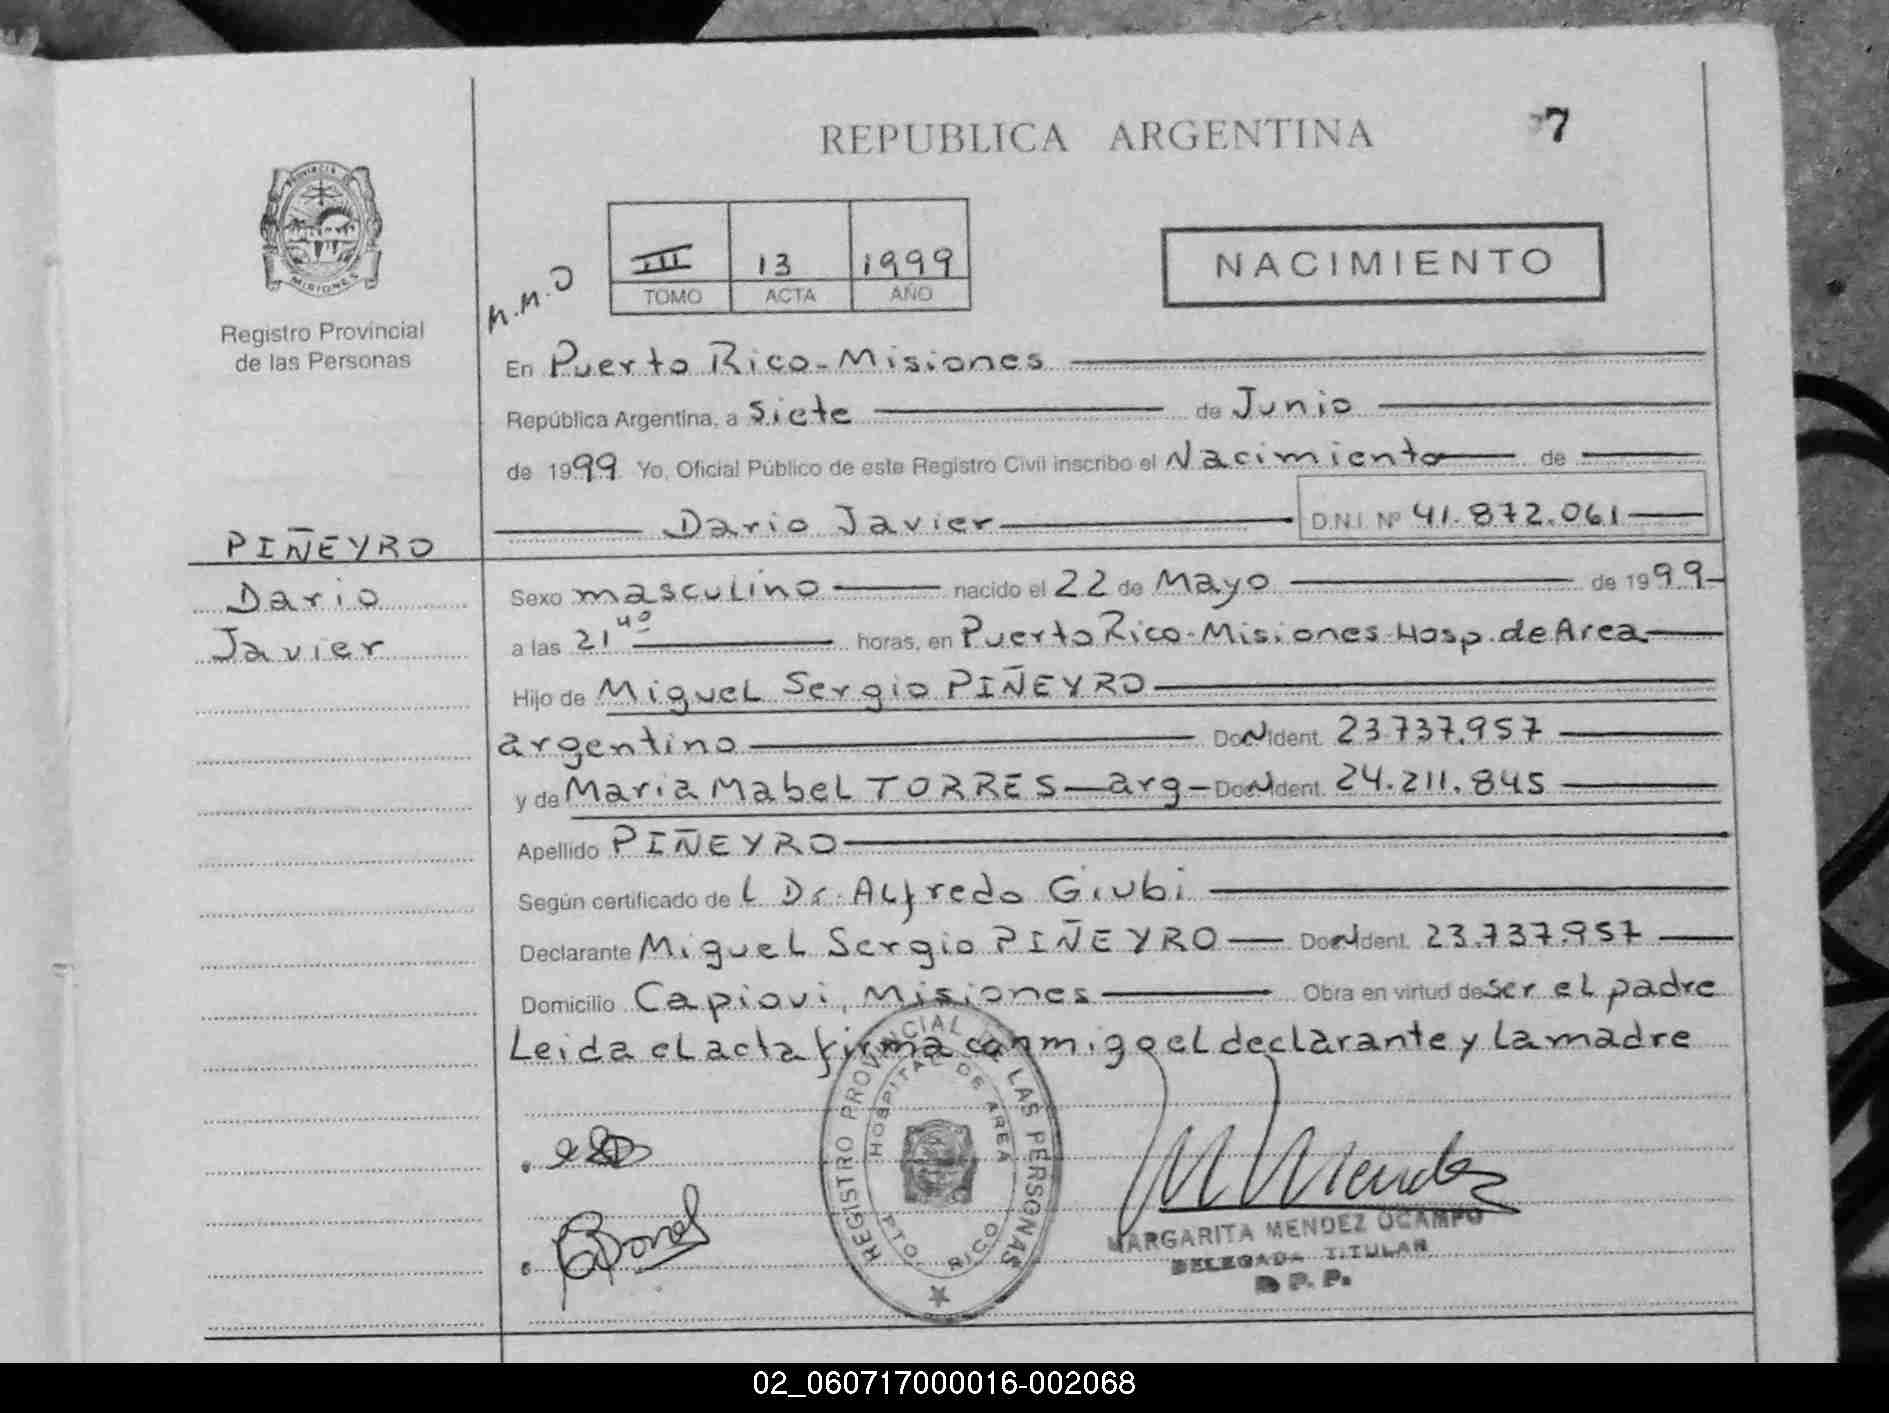 REPUBLICA ARGENTINA
7
PROVINCIA DE MISIONES
Registro Provincial
de las Personas
III 13 1999
TOMO ACTA AÑO
NACIMIENTO
M.M.O
En Puerto Rico-Misiones
República Argentina, a siete de Junio
de 1999 Yo, Oficial Público de este Registro Civil inscribo el Nacimiento de
Dario Javier D.N.I. Nº 41.872.061
PIÑEYRO
Dario
Javier
Sexo masculino nacido el 22 de Mayo de 1999
a las 21 40 horas, en Puerto Rico-Misiones-Hosp. de Area
Hijo de Miguel Sergio PIÑEYRO
argentino Ident. 23.737.957
y de Maria Mabel TORRES - arg - Ident. 24.211.845
Apellido PIÑEYRO
Según certificado de L Dr. Alfredo Giubi
Declarante Miguel Sergio PIÑEYRO Ident. 23.737.957
Domicilio Capiovi, Misiones Obra en virtud de ser el padre
Leida el acta firma conmigo el declarante y la madre
REGISTRO PROVINCIAL DE LAS PERSONAS
HOSPITAL DE AREA
PTO. RICO
M Mendez
MARGARITA MENDEZ OCAMPO
DELEGADA TITULAR
D P. P.
02_060717000016-002068